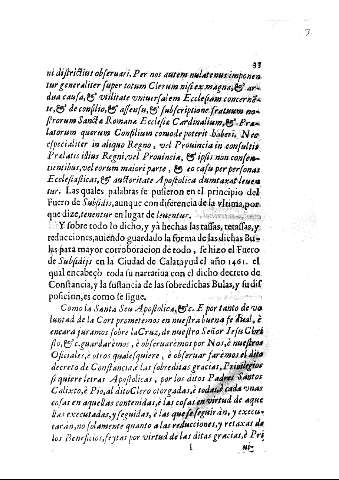 33
ni districtius observari. Per nos autem nulatenus imponen
tur generaliter super totum Clerum nisi ex magna, & ar-
dua causa, & vtilitate vniuersalem Ecclesiam concernẽ-
te, & de consilio, & assensu, & subscriptione fratrum no-
strorum Sanctæ Romanæ Ecclesiæ Cardinalium, & Præ-
latorum quorum Consilium comode poterit haberi, Nec
especialiter in aliquo Regno, vel Prouincia in consultis
Prælatis illius Regni, vel Prouincia, & ipsis non consen-
tientibus, vel eorum maiori parte, & eo casu per personas
Ecclesiasticas, & auctoritate Apostolica dumtaxat leuen
tur. Las quales palabras se pusieron en el principio del
Fuero de Subsidis, aunque con diferencia de la vltima, por
que dize, teneantur en lugar de leuentur.
Y sobre todo lo dicho, y yà hechas las tassas, retassas, y
redacciones, auiendo guardado la forma de las dichas Bu-
las para mayor corroboracion de todo, se hizo el Fuero
de Subsidijs en la Ciudad de Calatayud el año 1461. el
qual encabeçò toda su narratiua con el dicho decreto de
Constancia, y la sustancia de las sobredichas Bulas, y su dis
posicion, es como se sigue.
Como la Santa Seu Apostolica, &c. E por tanto de vo
luntad de la Cort prometemos en nuestra buena fe Real, è
encara juramos sobre la Cruz, de nuestro Señor Iesu Chri
sto, &c. guardarèmos, è obseruarèmos por Nos, è nuestros
Oficiales, è otros qualesquiere, è obseruar farèmos el dito
decreto de Constancia, è las sobreditas gracias, Priuilegios
si quiere letras Apostolicas, por los ditos Padres Santos
Calixto, è Pio, al dito Clero otorgadas, è todas, è cada vnas
cosas en aquellas contenidas, è las cosas en virtud de aque
llas executadas, y seguidas, è las que se seguiràn, y execu-
taràn, no solamente quanto a las reducciones, y retaxas de
los Beneficios, feytas por virtud de las ditas gracias, è Pri
I ui-